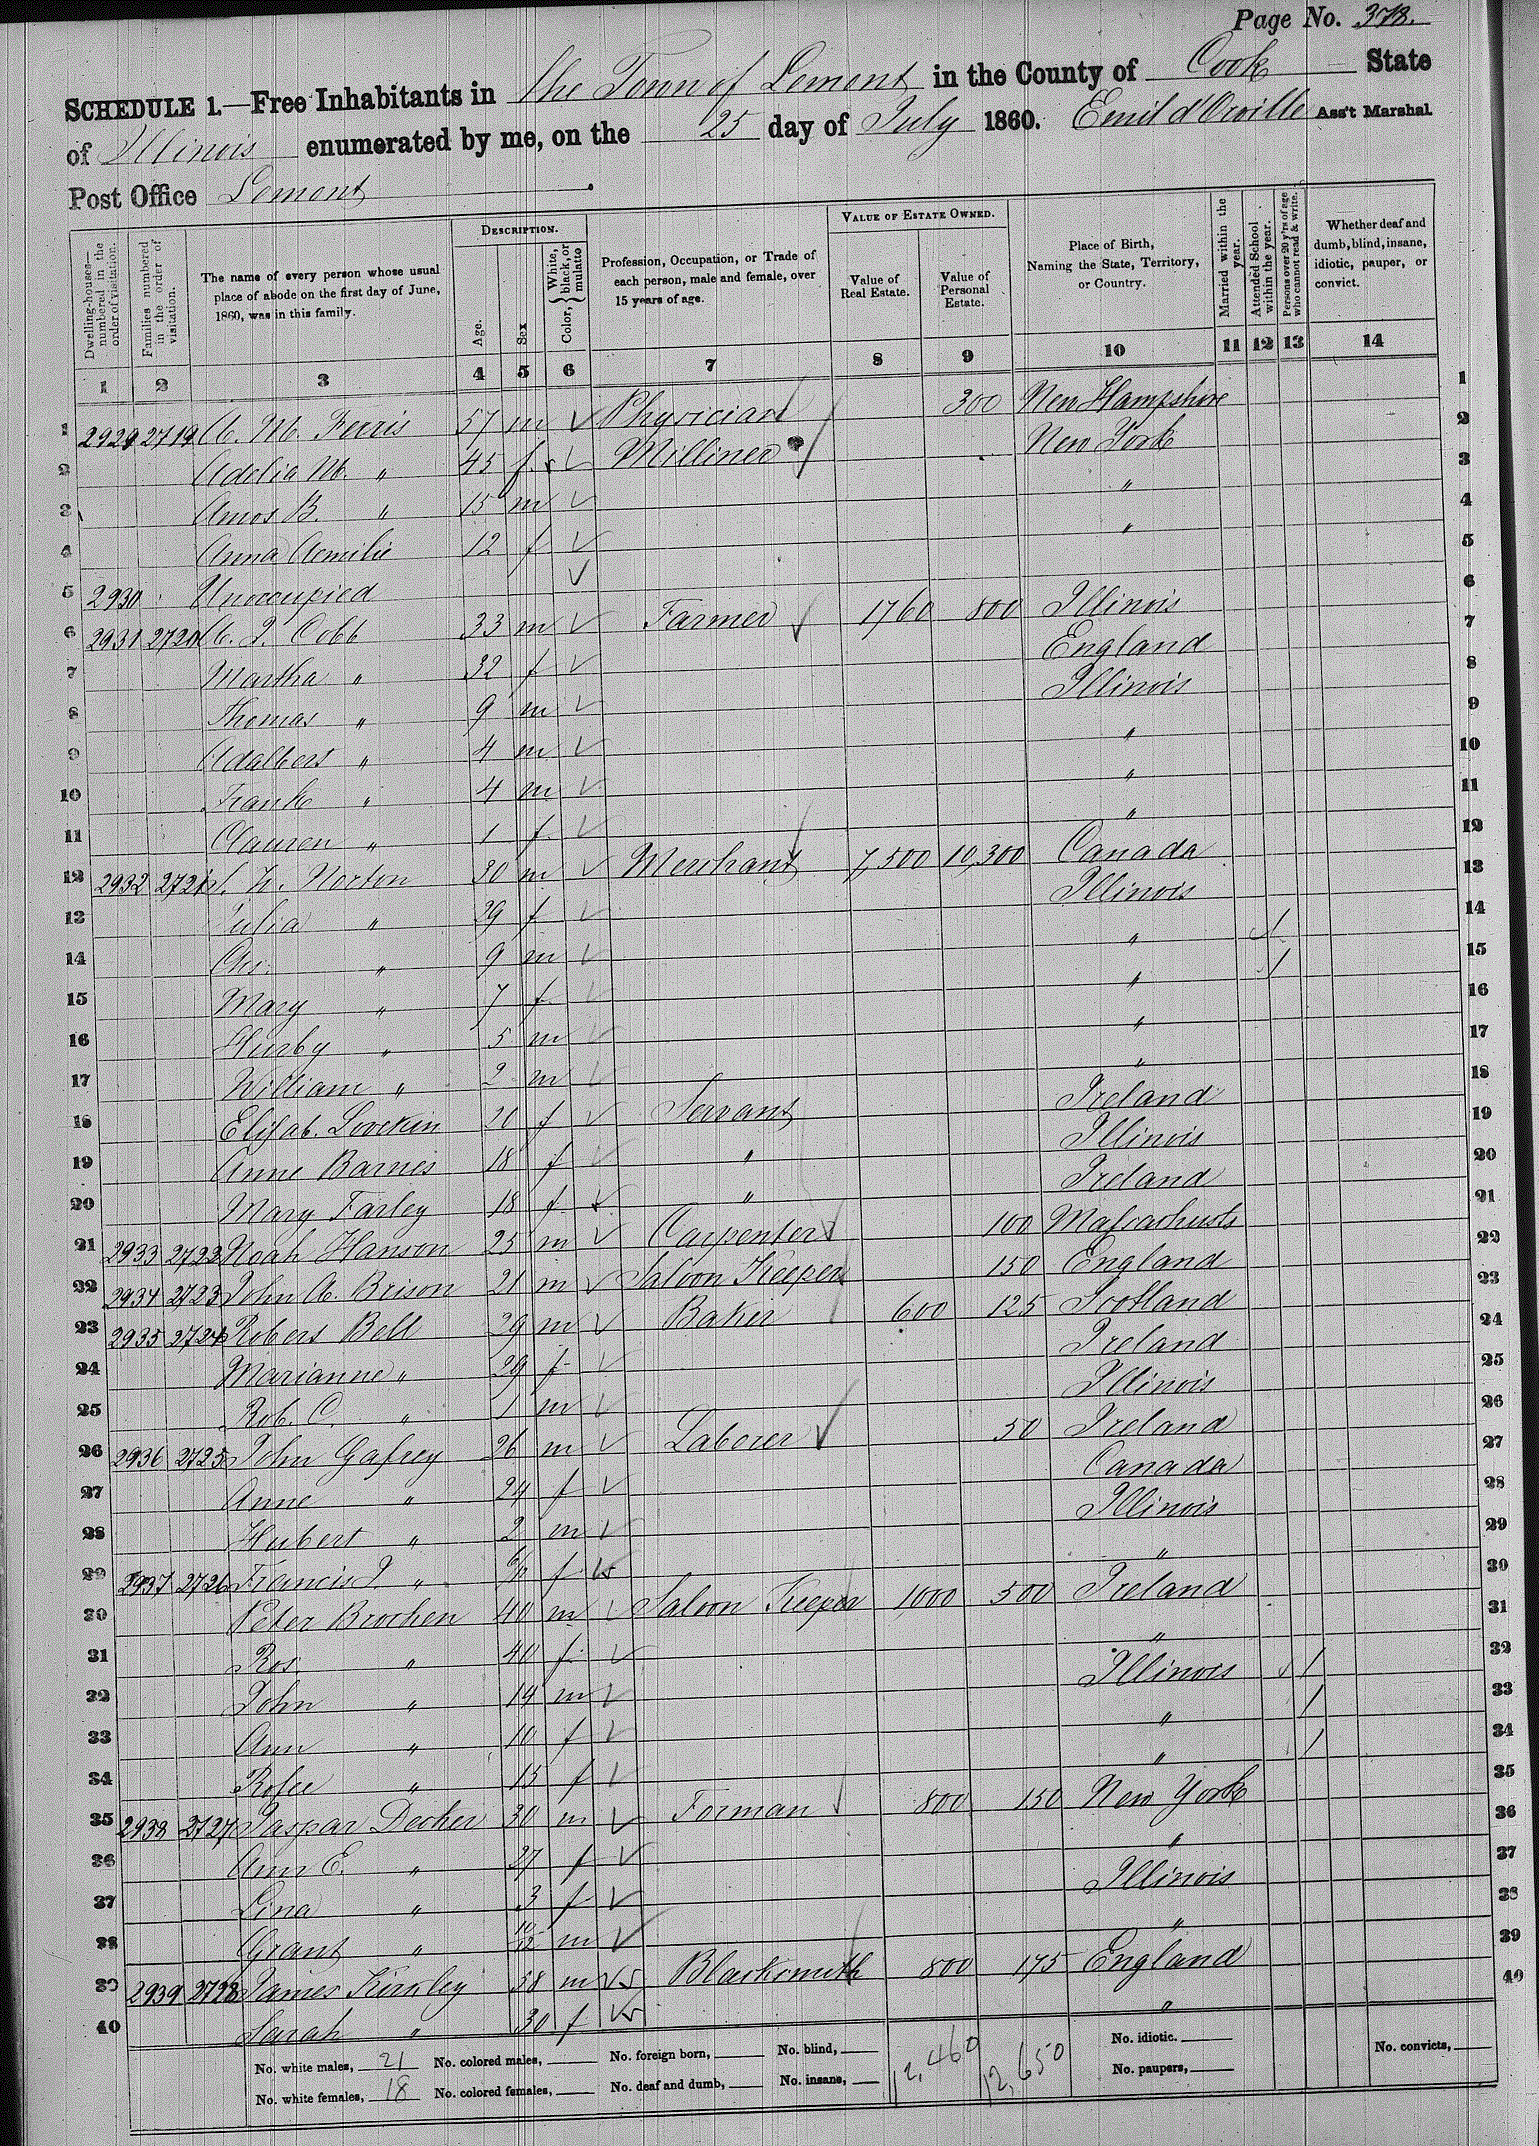 Page No. 373.
SCHEDULE 1.—Free Inhabitants in the Town of Lemont in the County of Cook State
of Illinois enumerated by me, on the 25 day of July 1860. Emil d'Orville Ass't Marshal.
Post Office Lemont
Dwelling-houses—numbered in the order of visitation.
Families numbered in the order of visitation.
The name of every person whose usual place of abode on the first day of June, 1860, was in this family.
DESCRIPTION.
Age.
Sex
Color, White, black, or mulatto
Profession, Occupation, or Trade of each person, male and female, over 15 years of age.
VALUE OF ESTATE OWNED.
Value of Real Estate.
Value of Personal Estate.
Place of Birth, Naming the State, Territory, or Country.
Married within the year.
Attended School within the year.
Persons over 20 y'rs of age who cannot read & write.
Whether deaf and dumb, blind, insane, idiotic, pauper, or convict.
1 2 3 4 5 6 7 8 9 10 11 12 13 14
1 2929 2719 M. Ferris 57 m Physician 300 New Hampshire 1
2 Adelia M. " 45 f Milliner New York 2
3 Amos B. " 15 m " 3
4 Anna Aemilie 12 f " 4
5 2930 Unoccupied 5
6 2931 2720 Cobb 33 m Farmer 1760 800 Illinois 6
7 Martha " 32 f England 7
8 Thomas " 9 m Illinois 8
9 Adalbert " 4 m " 9
10 Frank " 4 m " 10
11 Clauren " 1 f " 11
12 2932 2721 Norton 30 m Merchant 7,500 10,300 Canada 12
13 Julia " 29 f Illinois 13
14 Chs. " 9 m " / 14
15 Mary " 7 f " / 15
16 Hurby " 5 m " 16
17 William " 2 m " 17
18 Elisab. Lovekin 20 f Servant Ireland 18
19 Anne Barnes 18 f " Illinois 19
20 Mary Farley 18 f " Ireland 20
21 2933 2722 Noah Hanson 25 m Carpenter 100 Massachusts 21
22 2934 2723 John A. Brison 21 m Saloon Keeper 150 England 22
23 2935 2724 Robert Bell 29 m Baker 600 125 Scotland 23
24 Marianne " 29 f Ireland 24
25 Rob. C. " 1 m Illinois 25
26 2936 2725 John Gafrey 26 m Laborer 50 Ireland 26
27 Anne " 24 f Canada 27
28 Hubert " 2 m Illinois 28
29 2937 2726 Francis J. " f " 29
30 Peter Brochen 40 m Saloon Keeper 1,000 500 Ireland 30
31 Ros. " 40 f " 31
32 John " 14 m Illinois / 32
33 Ann " 10 f " / 33
34 Rosee " 15 f " / 34
35 2938 2727 Jaspar Decker 30 m Forman 800 150 New York 35
36 Ann E. " 27 f " 36
37 Lina " 3 f Illinois 37
38 Grant " 10/12 m " 38
39 2939 2728 James Kinsley 38 m Blacksmith 800 175 England 39
40 Sarah " 30 f " 40
No. white males, 21 No. colored males, No. foreign born, No. blind, 12,460 12,650 No. idiotic. No. convicts,
No. white females, 18 No. colored females, No. deaf and dumb, No. insane, No. paupers,